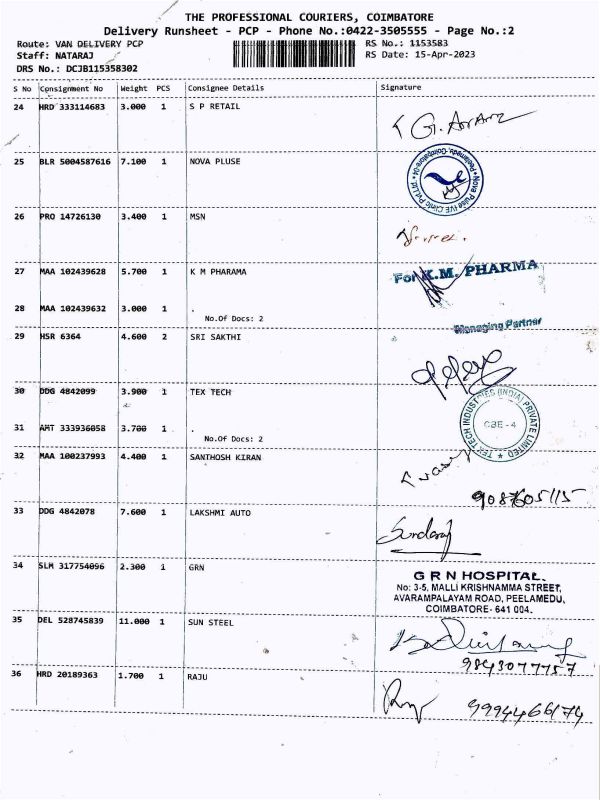 THE PROFESSIONAL COURIERS, COIMBATORE
Delivery Runsheet - PCP - Phone No.:0422-3505555 - Page No.:2
Route: VAN DELIVERY PCP RS No.: 1153583
Staff: NATARAJ RS Date: 15-Apr-2023
DRS No.: DCJB115358302
S No Consignment No Weight PCS Consignee Details Signature
24 HRD 333114683 3.000 1 S P RETAIL
25 BLR 5004587616 7.100 1 NOVA PLUSE
26 PRO 14726130 3.400 1 MSN
27 MAA 102439628 5.700 1 K M PHARAMA
For K.M. PHARMA
28 MAA 102439632 3.000 1 .
No.Of Docs: 2
Managing Partner
29 HSR 6364 4.600 2 SRI SAKTHI
30 DDG 4842099 3.900 1 TEX TECH
TEX TECH INDUSTRIES (INDIA) PRIVATE LIMITED
CBE - 4
31 AMT 333936058 3.700 1 .
No.Of Docs: 2
32 MAA 100237993 4.400 1 SANTHOSH KIRAN
33 DDG 4842078 7.600 1 LAKSHMI AUTO
Sundaraj
34 SLM 317754096 2.300 1 GRN
G R N HOSPITAL.
No: 3-5, MALLI KRISHNAMMA STREET,
AVARAMPALAYAM ROAD, PEELAMEDU,
COIMBATORE- 641 004.
35 DEL 528745839 11.000 1 SUN STEEL
9843077757
36 HRD 20189363 1.700 1 RAJU
9994466174